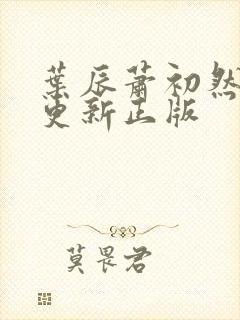 葉辰蕭初然
更新正版
莫畏君